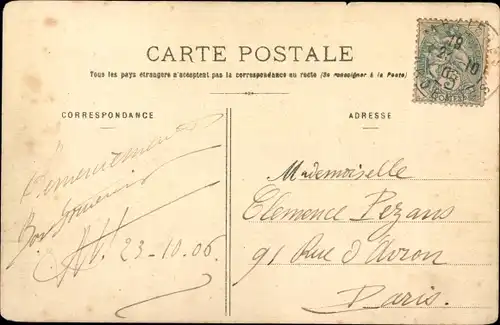 CARTE POSTALE
Tous les pays étrangers n'acceptent pas la correspondance au recto (Se renseigner à la Poste)
CORRESPONDANCE
ADRESSE
Remerciements
Bon Souvenir
23-10-06
Mademoiselle
Clemence Pezans
91 Rue d'Avron
Paris.